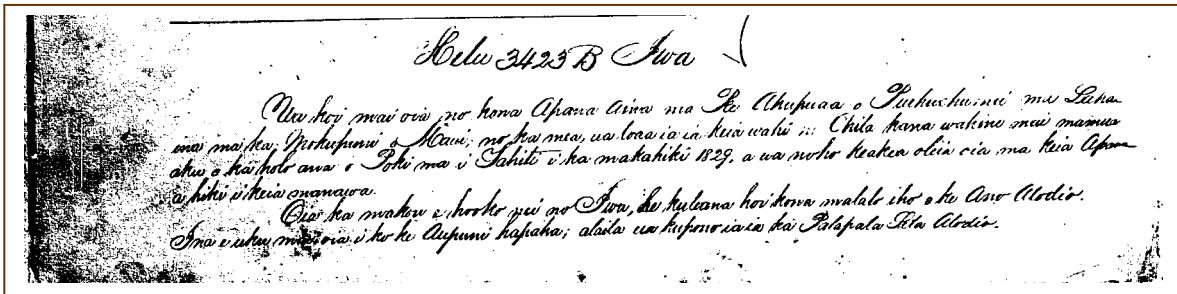 Helu 3423B Iwa
Ua koi mai oia, no kona Apana Aina ma Ke Ahupuaa o Puehuehunui ma Laha-
ina ma ka Mokupuni o Maui; no ka mea, ua loaa ia ia keia wahi ia Chila kana wahine mai mamua
aku o ka holo ana o Poki ma i Tahiti i ka makahiki 1829. a ua noho keakea oleia oia ma keia Apana
a hiki i keia manawa.
Oia ka makou e hooko nei no Iwa, he kuleana hoi kona malalo iho o ke Ano Alodio.
Ina e uku mai oia i ko ke Aupuni hapaha; alaila ua kupono ia ia ka Palapala Sila Alodio.